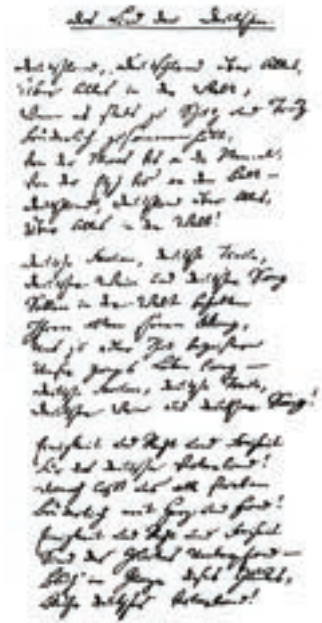 Das Lied der Deutschen.
Deutschland, Deutschland über Alles,
Über Alles in der Welt,
Wenn es stets zu Schutz und Trutze
Brüderlich zusammenhält,
Von der Maas bis an die Memel,
Von der Etsch bis an den Belt –
Deutschland, Deutschland über Alles,
Über Alles in der Welt!
Deutsche Frauen, deutsche Treue,
Deutscher Wein und deutscher Sang
Sollen in der Welt behalten
Ihren alten schönen Klang,
Uns zu edler That begeistern
Unser ganzes Leben lang –
Deutsche Frauen, deutsche Treue,
Deutscher Wein und deutscher Sang!
Einigkeit und Recht und Freiheit
Für das deutsche Vaterland!
Danach laßt uns alle streben
Brüderlich mit Herz und Hand!
Einigkeit und Recht und Freiheit
Sind des Glückes Unterpfand –
Blüh im Glanze dieses Glückes,
Blühe deutsches Vaterland!